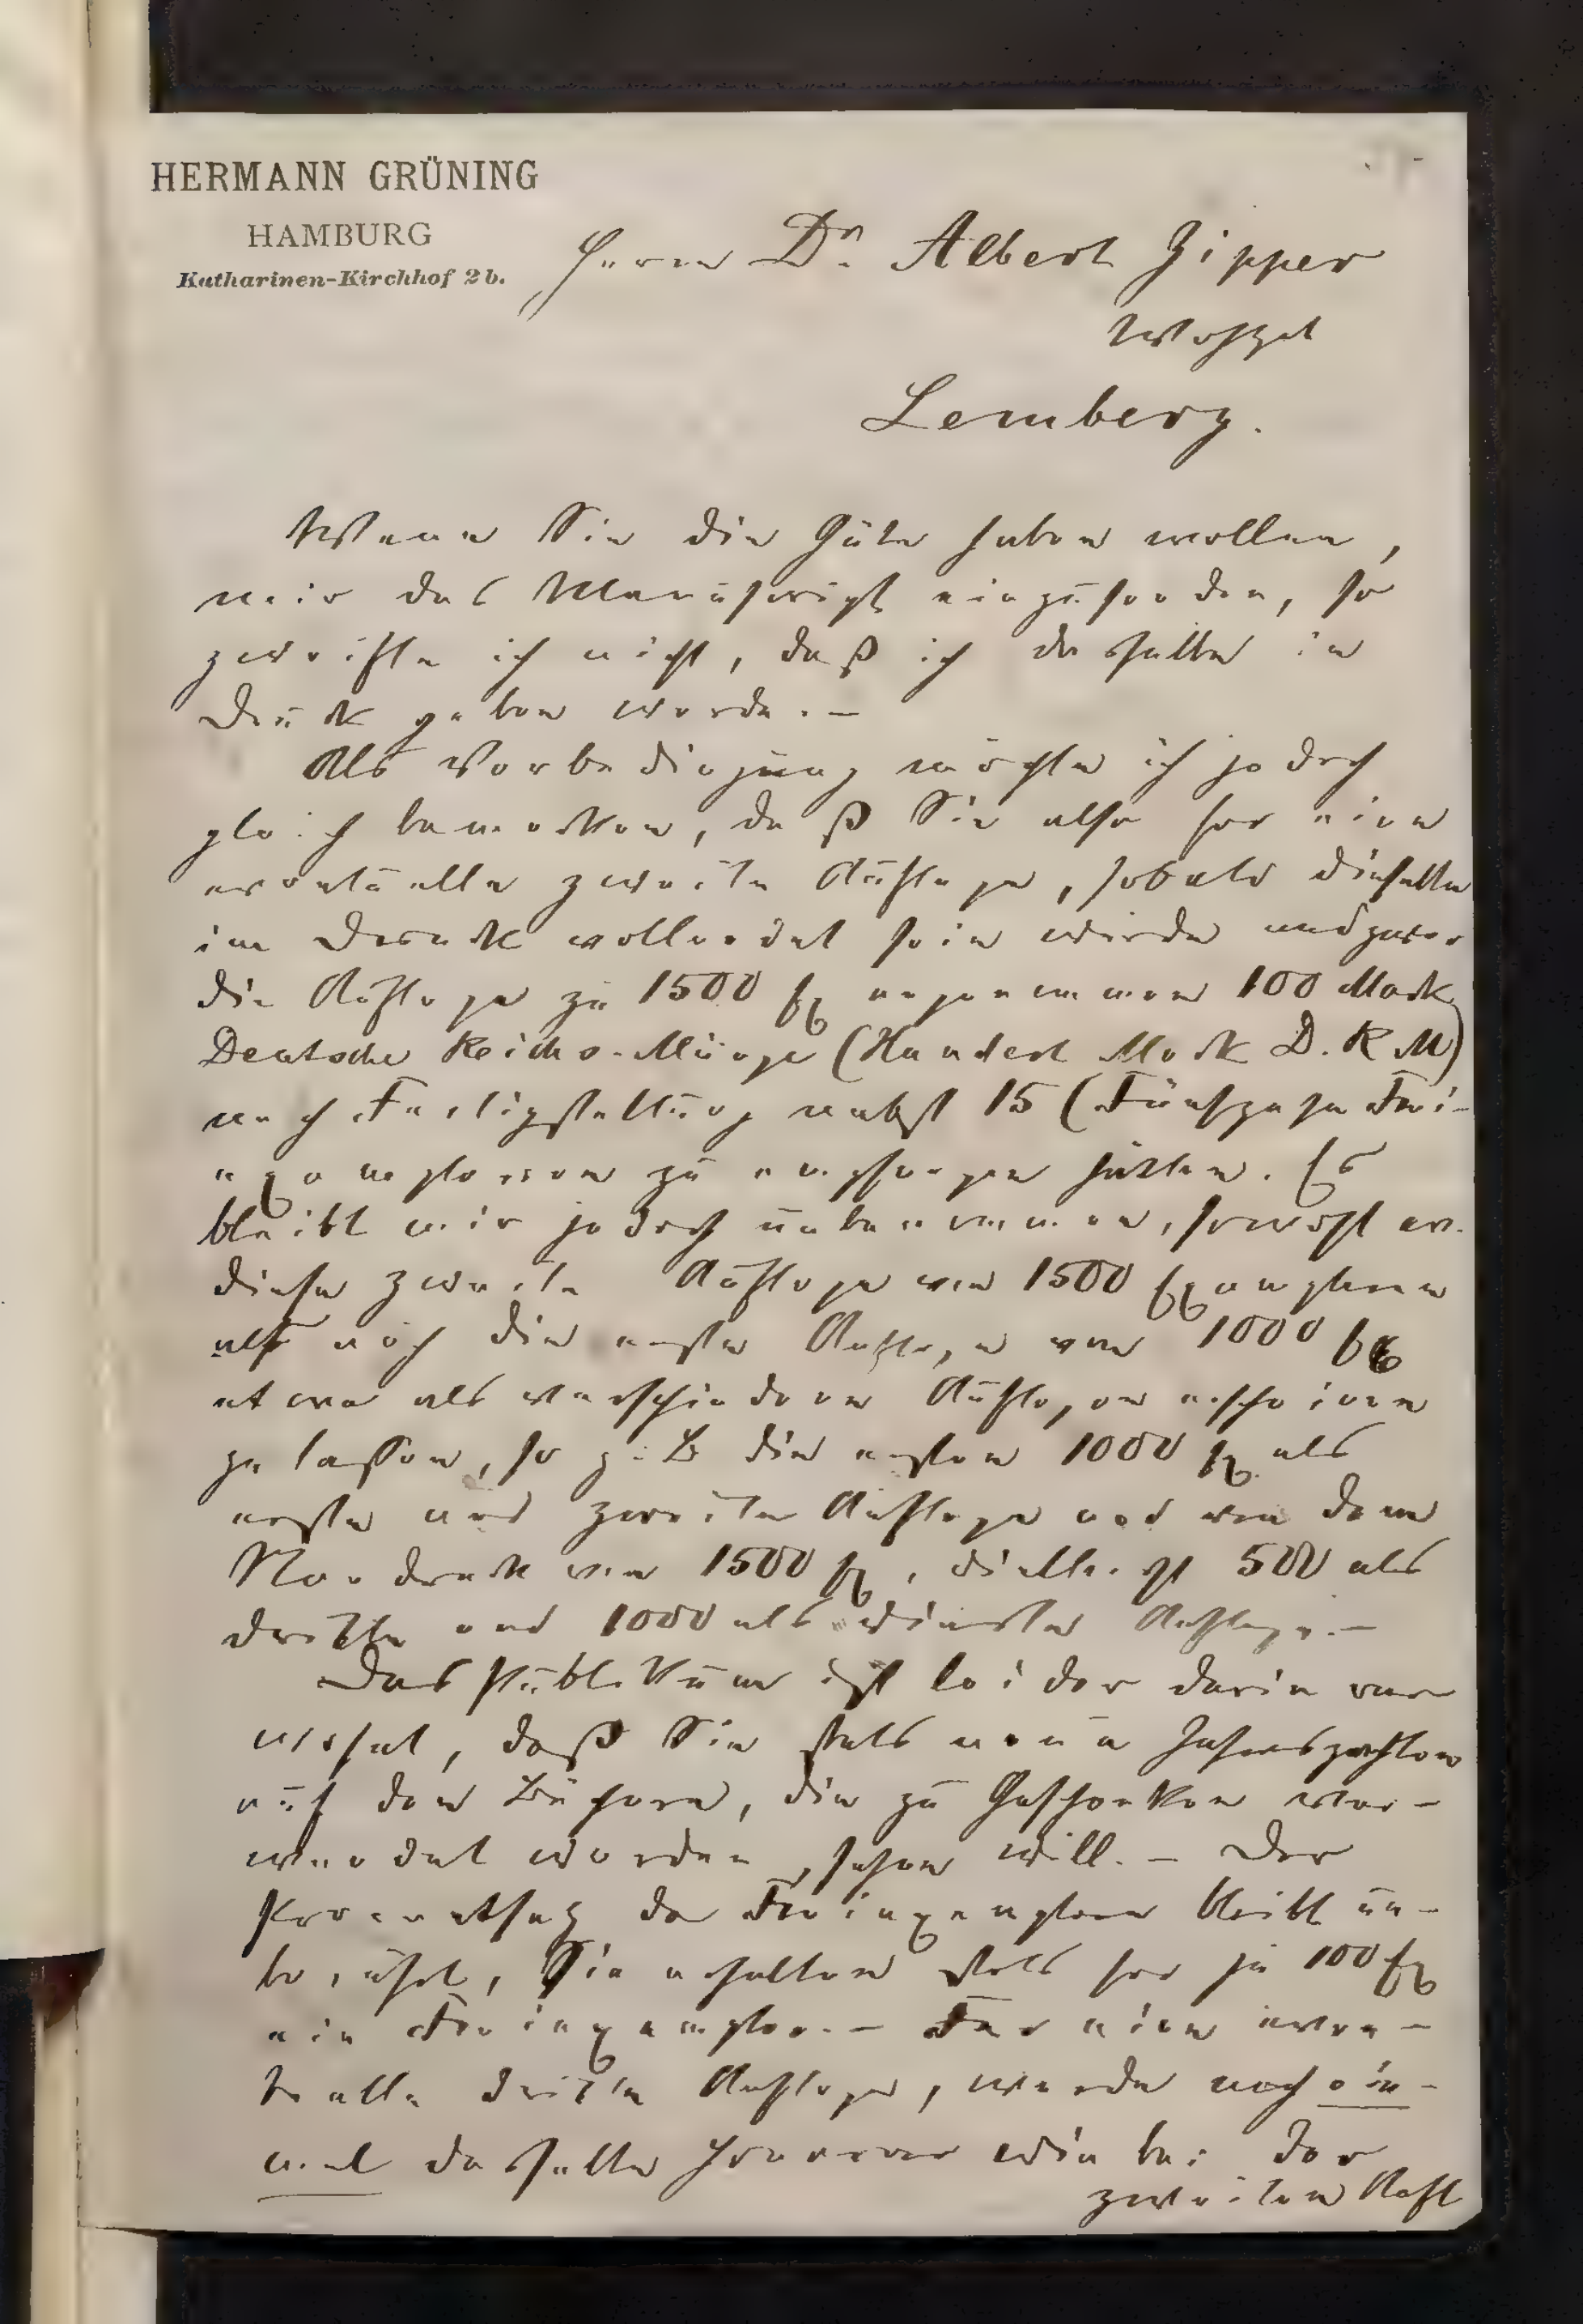 HERMANN GRÜNING
HAMBURG
Katharinen-Kirchhof 2b.
Herrn Dr. Albert Zipper
Wohlgeb
Lemberg.
Wenn Sie die Güte haben wollen,
mir das Manuscript einzusenden, so
zweifle ich nicht, daß ich dasselbe in
Druck geben werde. —
Als Vorbedingung möchte ich jedoch
gleich bemerken, daß Sie also für eine
eventuelle zweite Auflage, sobald dieselbe
im Druck vollendet sein würde und zwar
die Auflage zu 1500 Ex angenommen 100 Mark
Deutsche Reichs-Münze (Hundert Mark D. R M)
nach Fertigstellung nebst 15 (Fünfzehn Frei-
exemplaren zu empfangen hätten. Es
bleibt mir jedoch unbenommen, sowohl
diese zweite Auflage von 1500 Exemplaren
als auch die erste Auflage von 1000 Ex
etwa als verschiedene Auflagen erscheinen
zu lassen, so z. B die ersten 1000 Ex als
erste und zweite Auflage und von dem
Neudruck von 1500 Ex, vielleicht 500 als
dritte und 1000 als vierte Auflage. —
Das Publikum ist leider darin ver
wöhnt, daß Sie stets neue Jahreszahlen
auf den Büchern, die zu Geschenken ver-
wendet werden, sehen will. — Der
Procentsatz der Freiexemplare bleibt un-
berührt, Sie erhalten stets für je 100 Ex
ein Freiexemplar. — Für eine even-
tuelle dritte Auflage, würde noch ein-
mal dasselbe Honorar wie bei der
zweiten Aufl